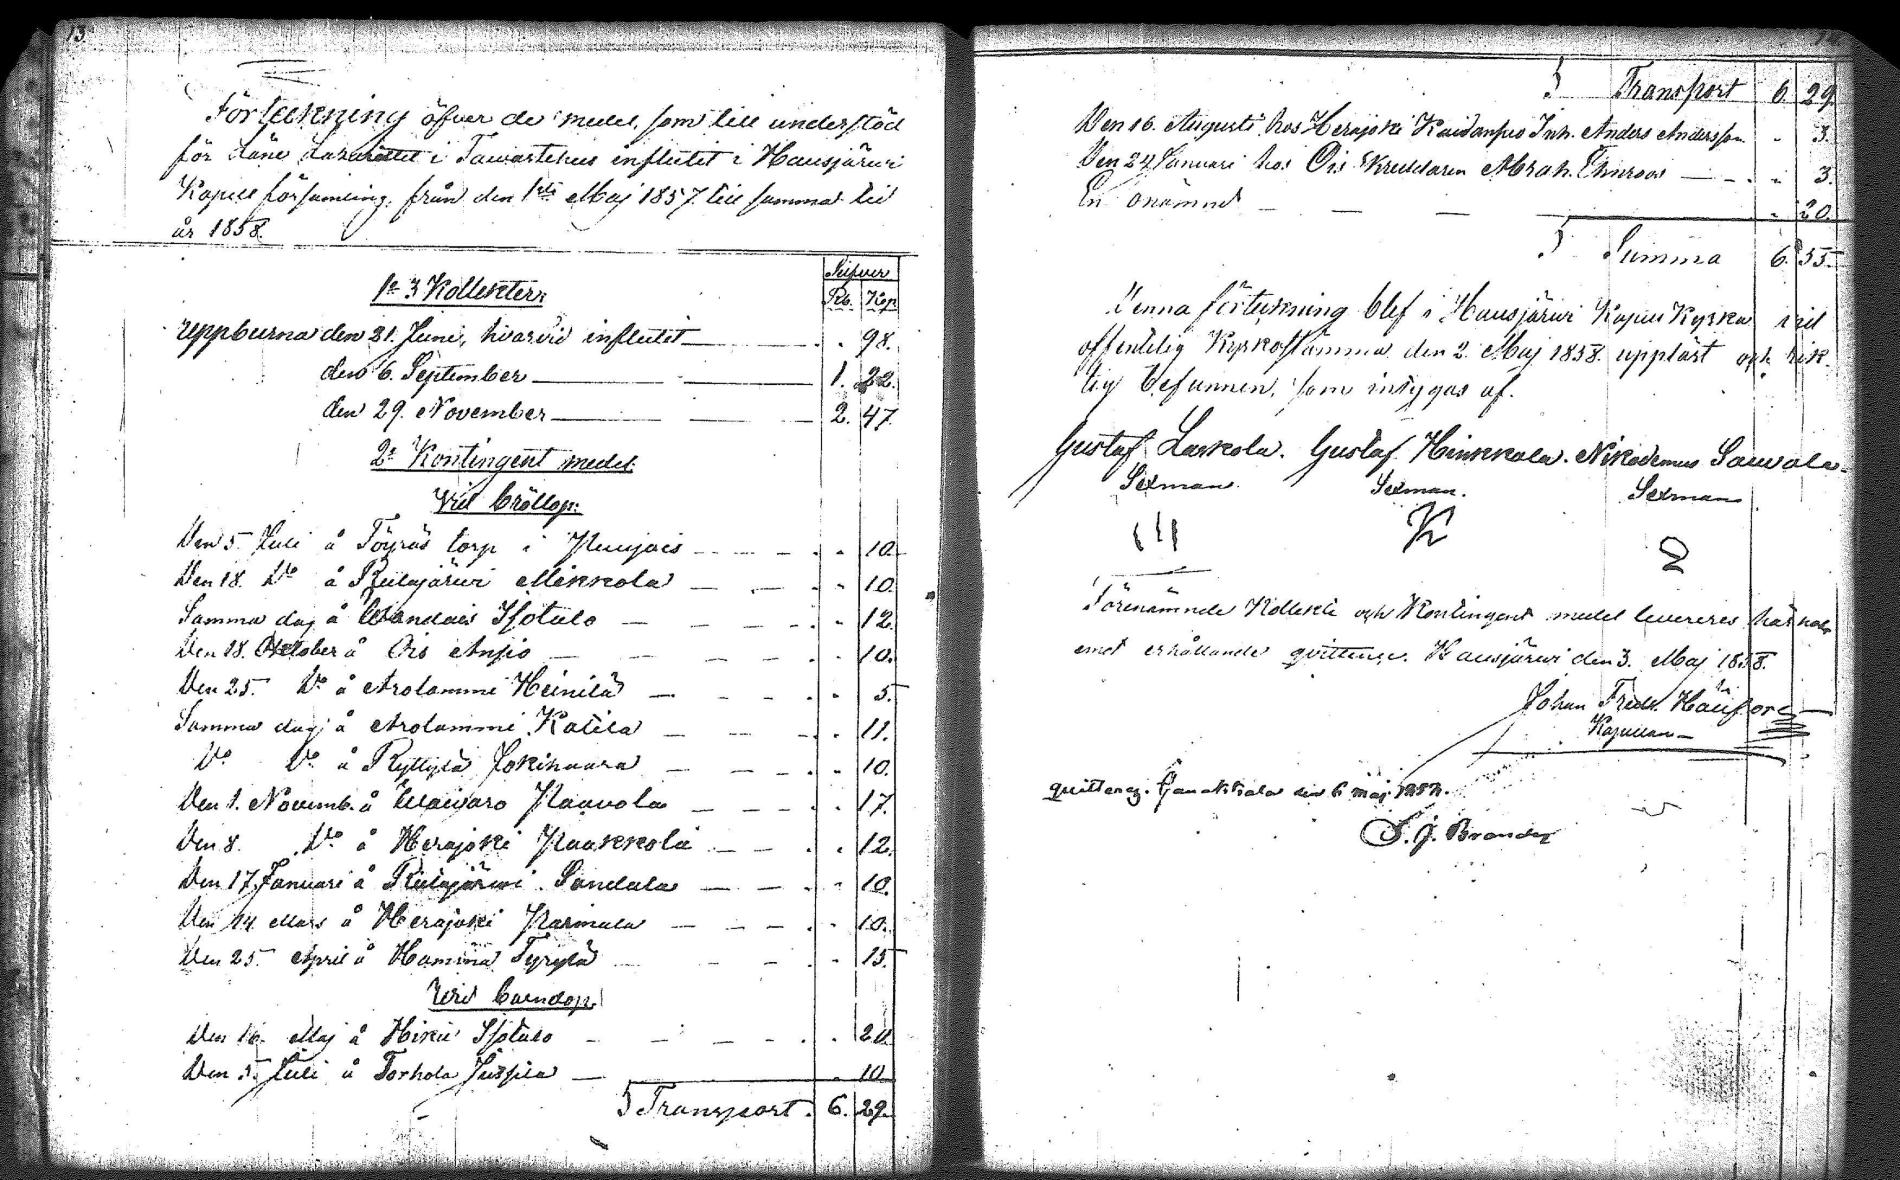 13
Förteckning öfver de medel, som till understöd
för Läne Lazarettet i Tawastehus influtit i Hausjärwi
Kapell församling, från den 1sta Maj 1857 till samma tid
år 1858.
Silfver
1o 3 Kollekter:
Rb. Kop
uppburna den 21. Juni, hvarvid influtit . 98.
den 6. September 1. 22.
den 29. November 2. 47.
2o Kontingent medel
Vid bröllop:
Den 5. Juli å Töyräs torp i 10.
Den 18. Do å Ridasjärwi Mikkola 10.
Samma dag å Isotalo 12.
Den 18. Oktober å Ois Anjio 10.
Den 25. Do å Arolammi Heinilä 5.
Samma dag å Arolammi Katila 11.
Do Do å Ryttylä Jokihaara 10.
Den 1. Novemb. å Paavola 17.
Den 8. Do å Herajoki Paakkola 12.
Den 17. Januari å Ridasjärwi Sandala 10.
Den 14. Mars å Herajoki Parmala 10.
Den 25. April å Hamina Tyrylä 15
Vid barndop
Den 16. Maj å Hikiä Isotalo 20
Den 5. Juli å Torhola Jussila 10
Transport. 6. 29.
Transport 6. 29.
Den 16. Augusti hos Herajoki Inh. Anders Andersson 3.
Den 24 Januari hos Ois Skräddaren Abrah. Thuroos 3.
En onämnd 20.
Summa 6. 55.
Denna förteckning blef i Hausjärwi Kapell Kyrka vid
offentelig Kyrkostämma den 2. Maj 1858. uppläst och rik-
tig befunnen, som intygas af.
Gustaf Laskola. Gustaf Hinkkala. Nikodemus Sauvala.
Sexman. Sexman. Sexman
Förenämnde Kollekt och Kontingent medel levereres härmed
emot erhållande qvittence. Hausjärwi den 3. Maj 1858.
Johan Fredr.
Kapellan
qvitteras. Janakkala den 6 maj 1858.
S. J. Brander